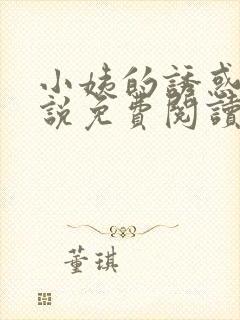 小姨的誘惑
說免費閱讀
董琪